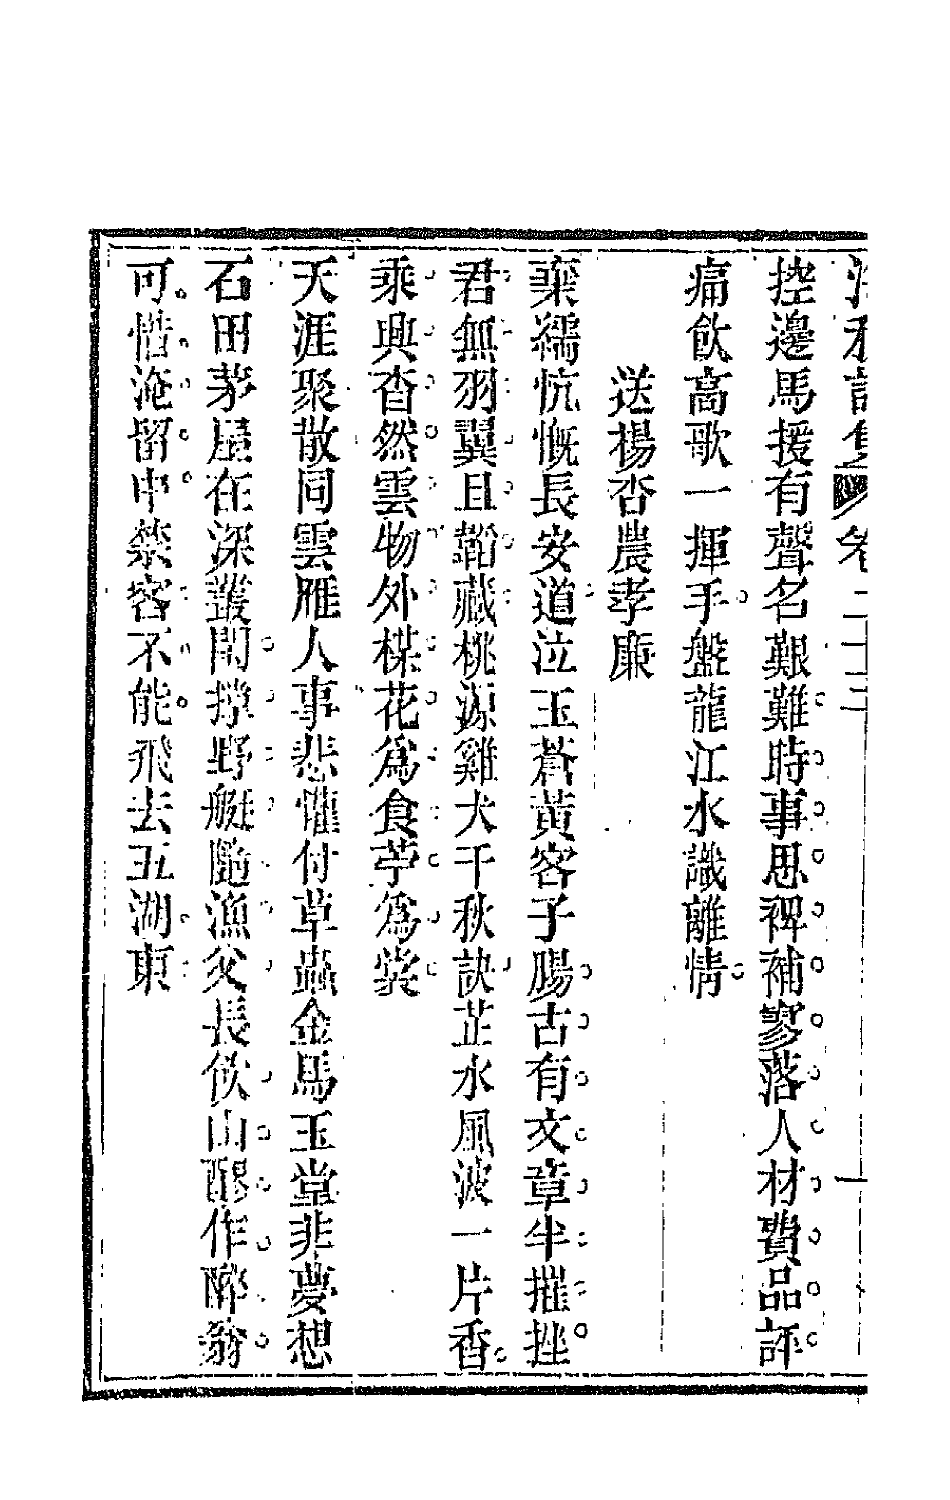 卷二十三
一
控邊馬援有聲名艱難時事思裨補寥落人材費品評
痛飲高歌一揮手盤龍江水識離情
送楊杏農孝廉
棄繻忼慨長安道泣玉蒼黃客子腸古有文章半摧挫
君無羽翼且韜藏桃源雞犬千秋訣芷水風波一片香
乘興杳然雲物外楳花爲食荢爲裳
天涯聚散同雲雁人事悲懽付草蟲金馬玉堂非夢想
石田茅屋在深叢閒撑野艇隨漁父長飲山醪作醉翁
可惜淹留申禁客不能飛去五湖東